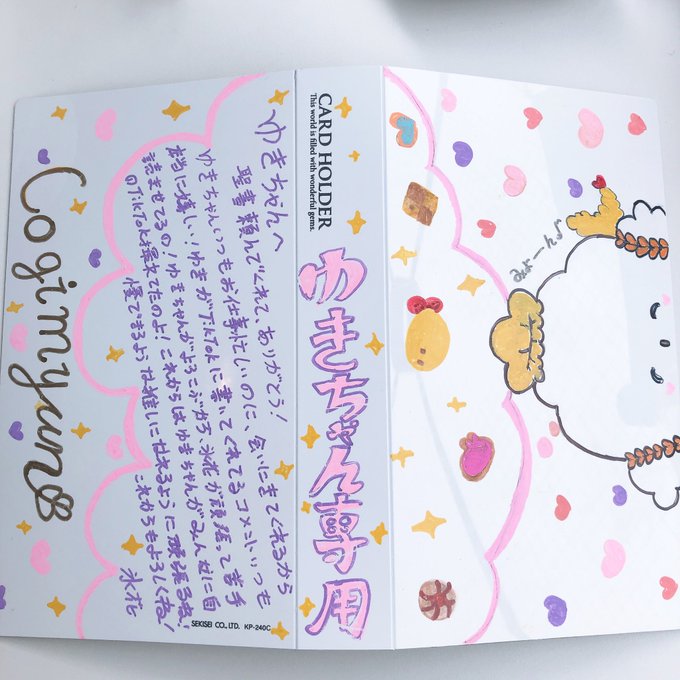 CARD HOLDER
This world is filled with wonderful gems.
ゆきちゃん専用
みょーん♪
ゆきちゃんへ
聖書頼んでくれて、ありがとう!
ゆきちゃんいつもお仕事忙しいのに、会いにきてくれるから
本当に嬉しい!ゆきがTikTokに書いてくれてるコメントいつも
読ませてるの!ゆきちゃんがよろこぶから、氷花が頑張って苦手
のTikTok撮れてたのよ!これからはゆきちゃんがみんなに自
慢できるような推しになれるように頑張るね!
これからもよろしくね!
氷花
Cogimyun
SEKISEI CO., LTD. KP-240C